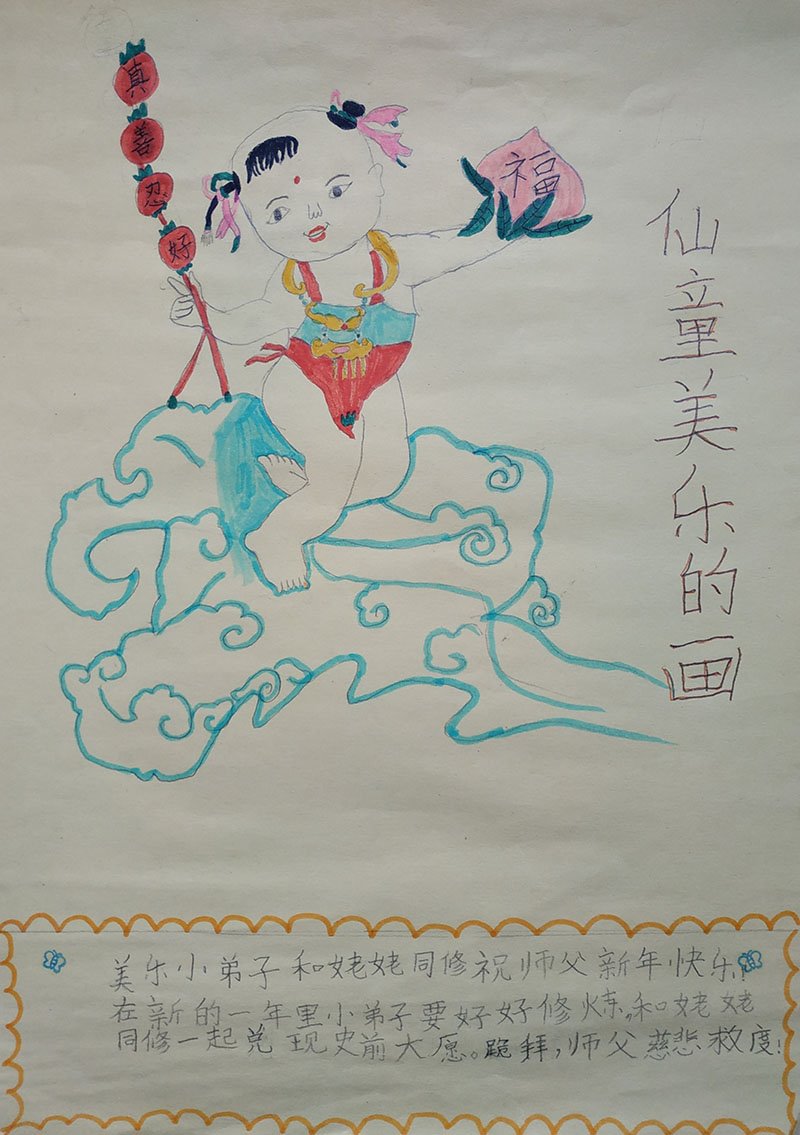 真
善
忍
好
福
仙童美乐的画
美乐小弟子和姥姥同修祝师父新年快乐!
在新的一年里小弟子要好好修炼,和姥姥
同修一起兑现史前大愿。跪拜,师父慈悲救度!